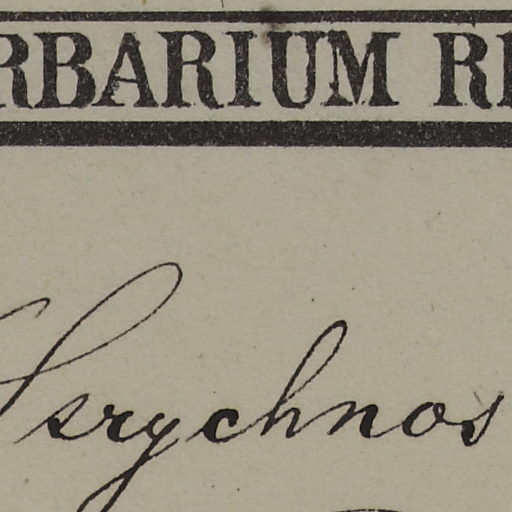 RBARIUM RE
Strychnos